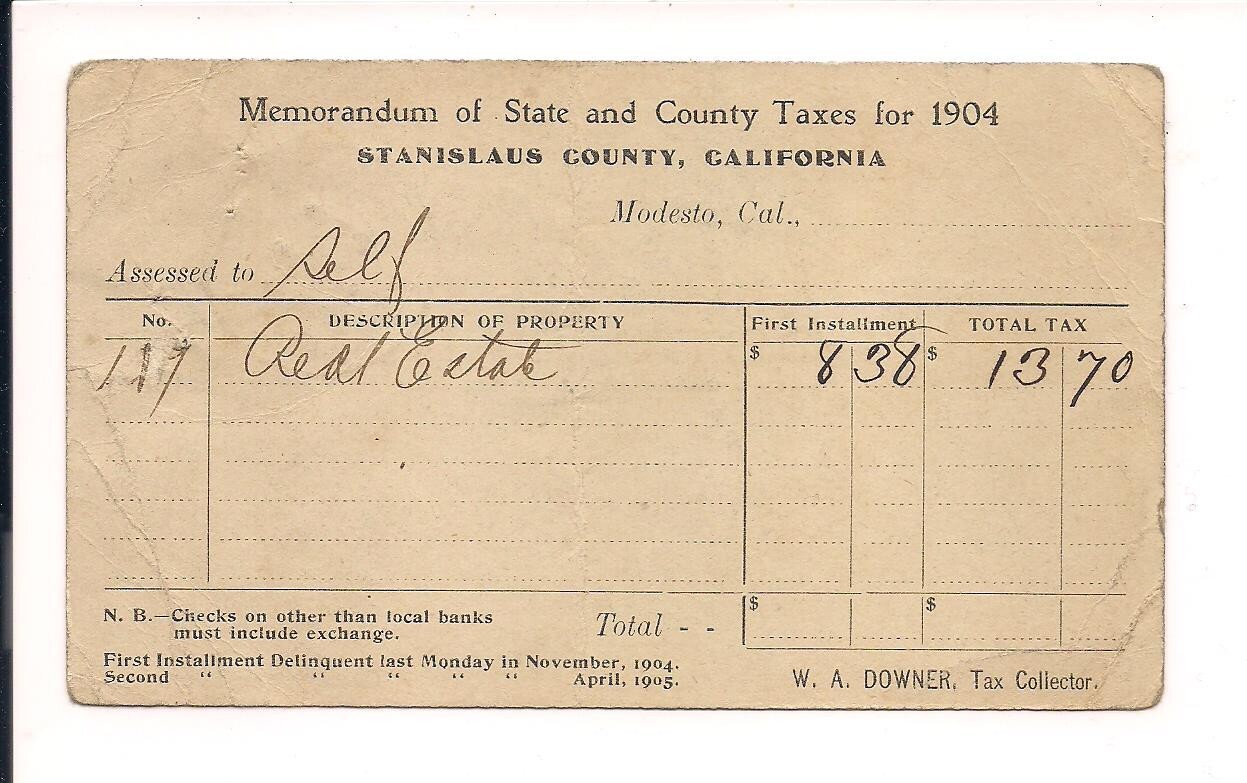 Memorandum of State and County Taxes for 1904
STANISLAUS COUNTY, CALIFORNIA
Modesto, Cal.,
Assessed to Self
No. DESCRIPTION OF PROPERTY First Installment TOTAL TAX
117 Real Estate $ 8 38 $ 13 70
N. B.—Checks on other than local banks
must include exchange.
Total - - $ $
First Installment Delinquent last Monday in November, 1904.
Second “ “ “ “ “ April, 1905.
W. A. DOWNER, Tax Collector.